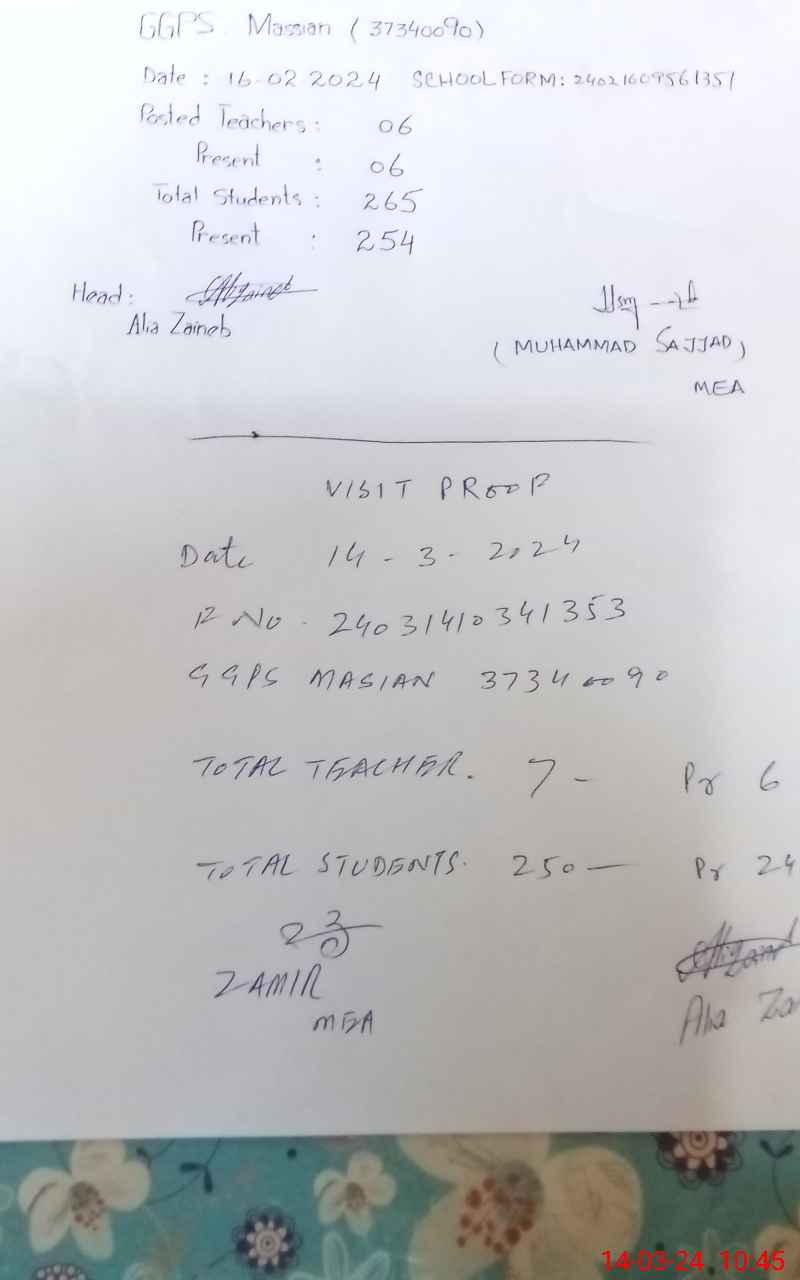 GGPS. Massian (37340090)
Date : 16-02-2024 SCHOOL FORM: 24021609561351
Posted Teachers : 06
Present : 06
Total Students : 265
Present : 254
Head:
Alia Zaineb
(MUHAMMAD SAJJAD)
MEA
VISIT PROOF
Date 14-3-2024
R No. 24031410341353
GGPS MASIAN 37340090
TOTAL TEACHER. 7 - Pr 6
TOTAL STUDENTS. 250 — Pr 24
ZAMIR
MEA
Alia Za
14-03-24 10:45